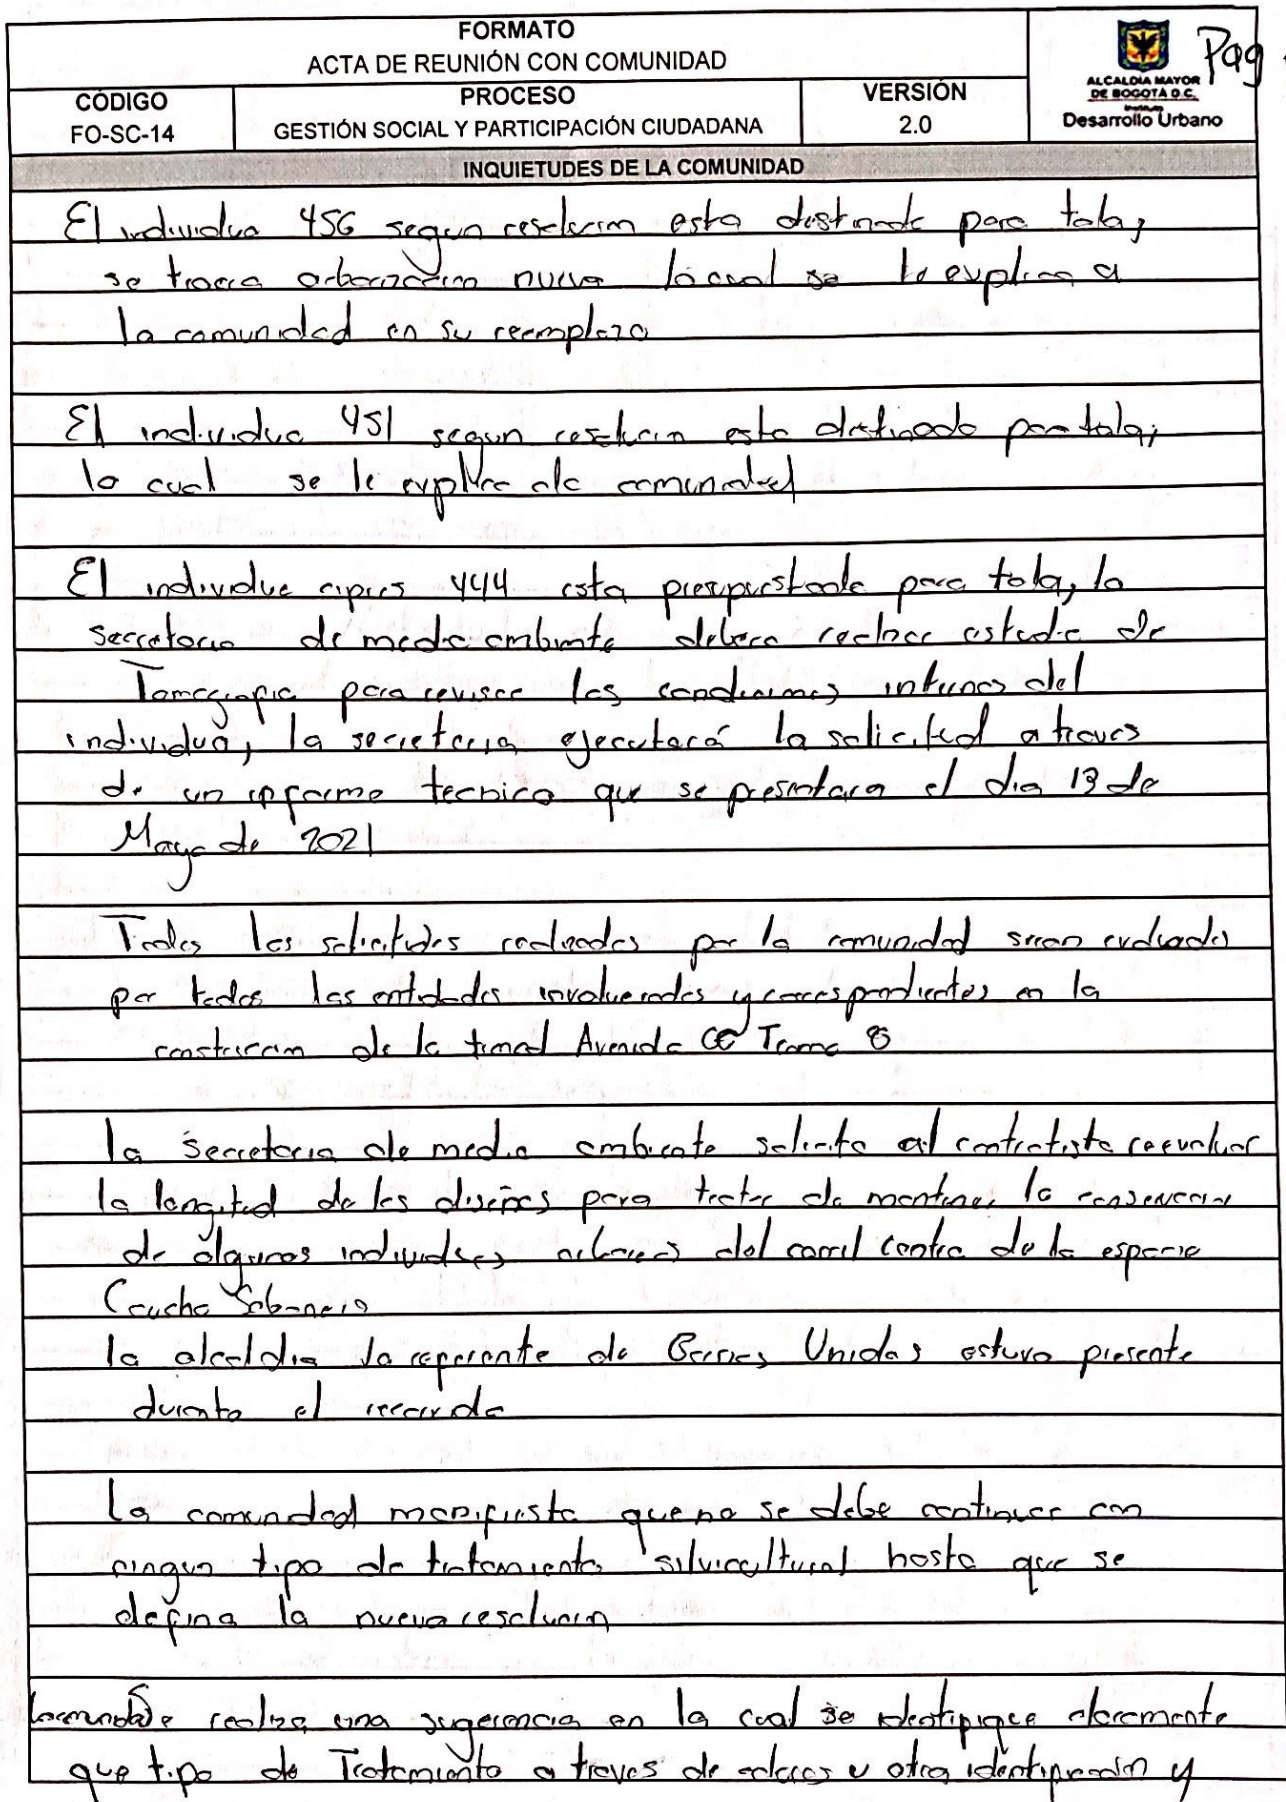 FORMATO
ACTA DE REUNIÓN CON COMUNIDAD
CÓDIGO
FO-SC-14
PROCESO
GESTIÓN SOCIAL Y PARTICIPACIÓN CIUDADANA
VERSIÓN
2.0
ALCALDÍA MAYOR
DE BOGOTÁ D.C.
Instituto
Desarrollo Urbano
Pag
INQUIETUDES DE LA COMUNIDAD
El individuo 456 segun resolucion esta destinado para tala,
se traera arborizacion nueva lo cual se le explica a
la comunidad en su reemplazo
El individuo 451 segun resolucion esta destinado para tala,
lo cual se le explica a la comunidad
El individuo cipres 444 esta presupuestado para tala, la
secretaria de medio ambiente debera realizar estudio de
Tomografia para revisar las condiciones internas del
individuo, la secretaria ejecutará la solicitud a traves
de un informe tecnico que se presentara el dia 13 de
Mayo de 2021
Todas las solicitudes realizadas por la comunidad seran evaluadas
por todas las entidades involucradas y correspondientes en la
construccion de la troncal Avenida 68 Tramo 8
la secretaria de medio ambiente solicita al contratista reevaluar
la longitud de los diseños para tratar de mantener la conservacion
de algunos individuos arboreos del carril centro de la especie
Caucho Sabanero
la alcaldia de Barrios Unidos estuvo presente
durante el recorrido
La comunidad manifiesta que no se debe continuar con
ningun tipo de tratamiento silvicultural hasta que se
defina la nueva resolucion
la comunidad realiza una sugerencia en la cual se identifique claramente
que tipo de Tratamiento a traves de colores u otra identificacion y